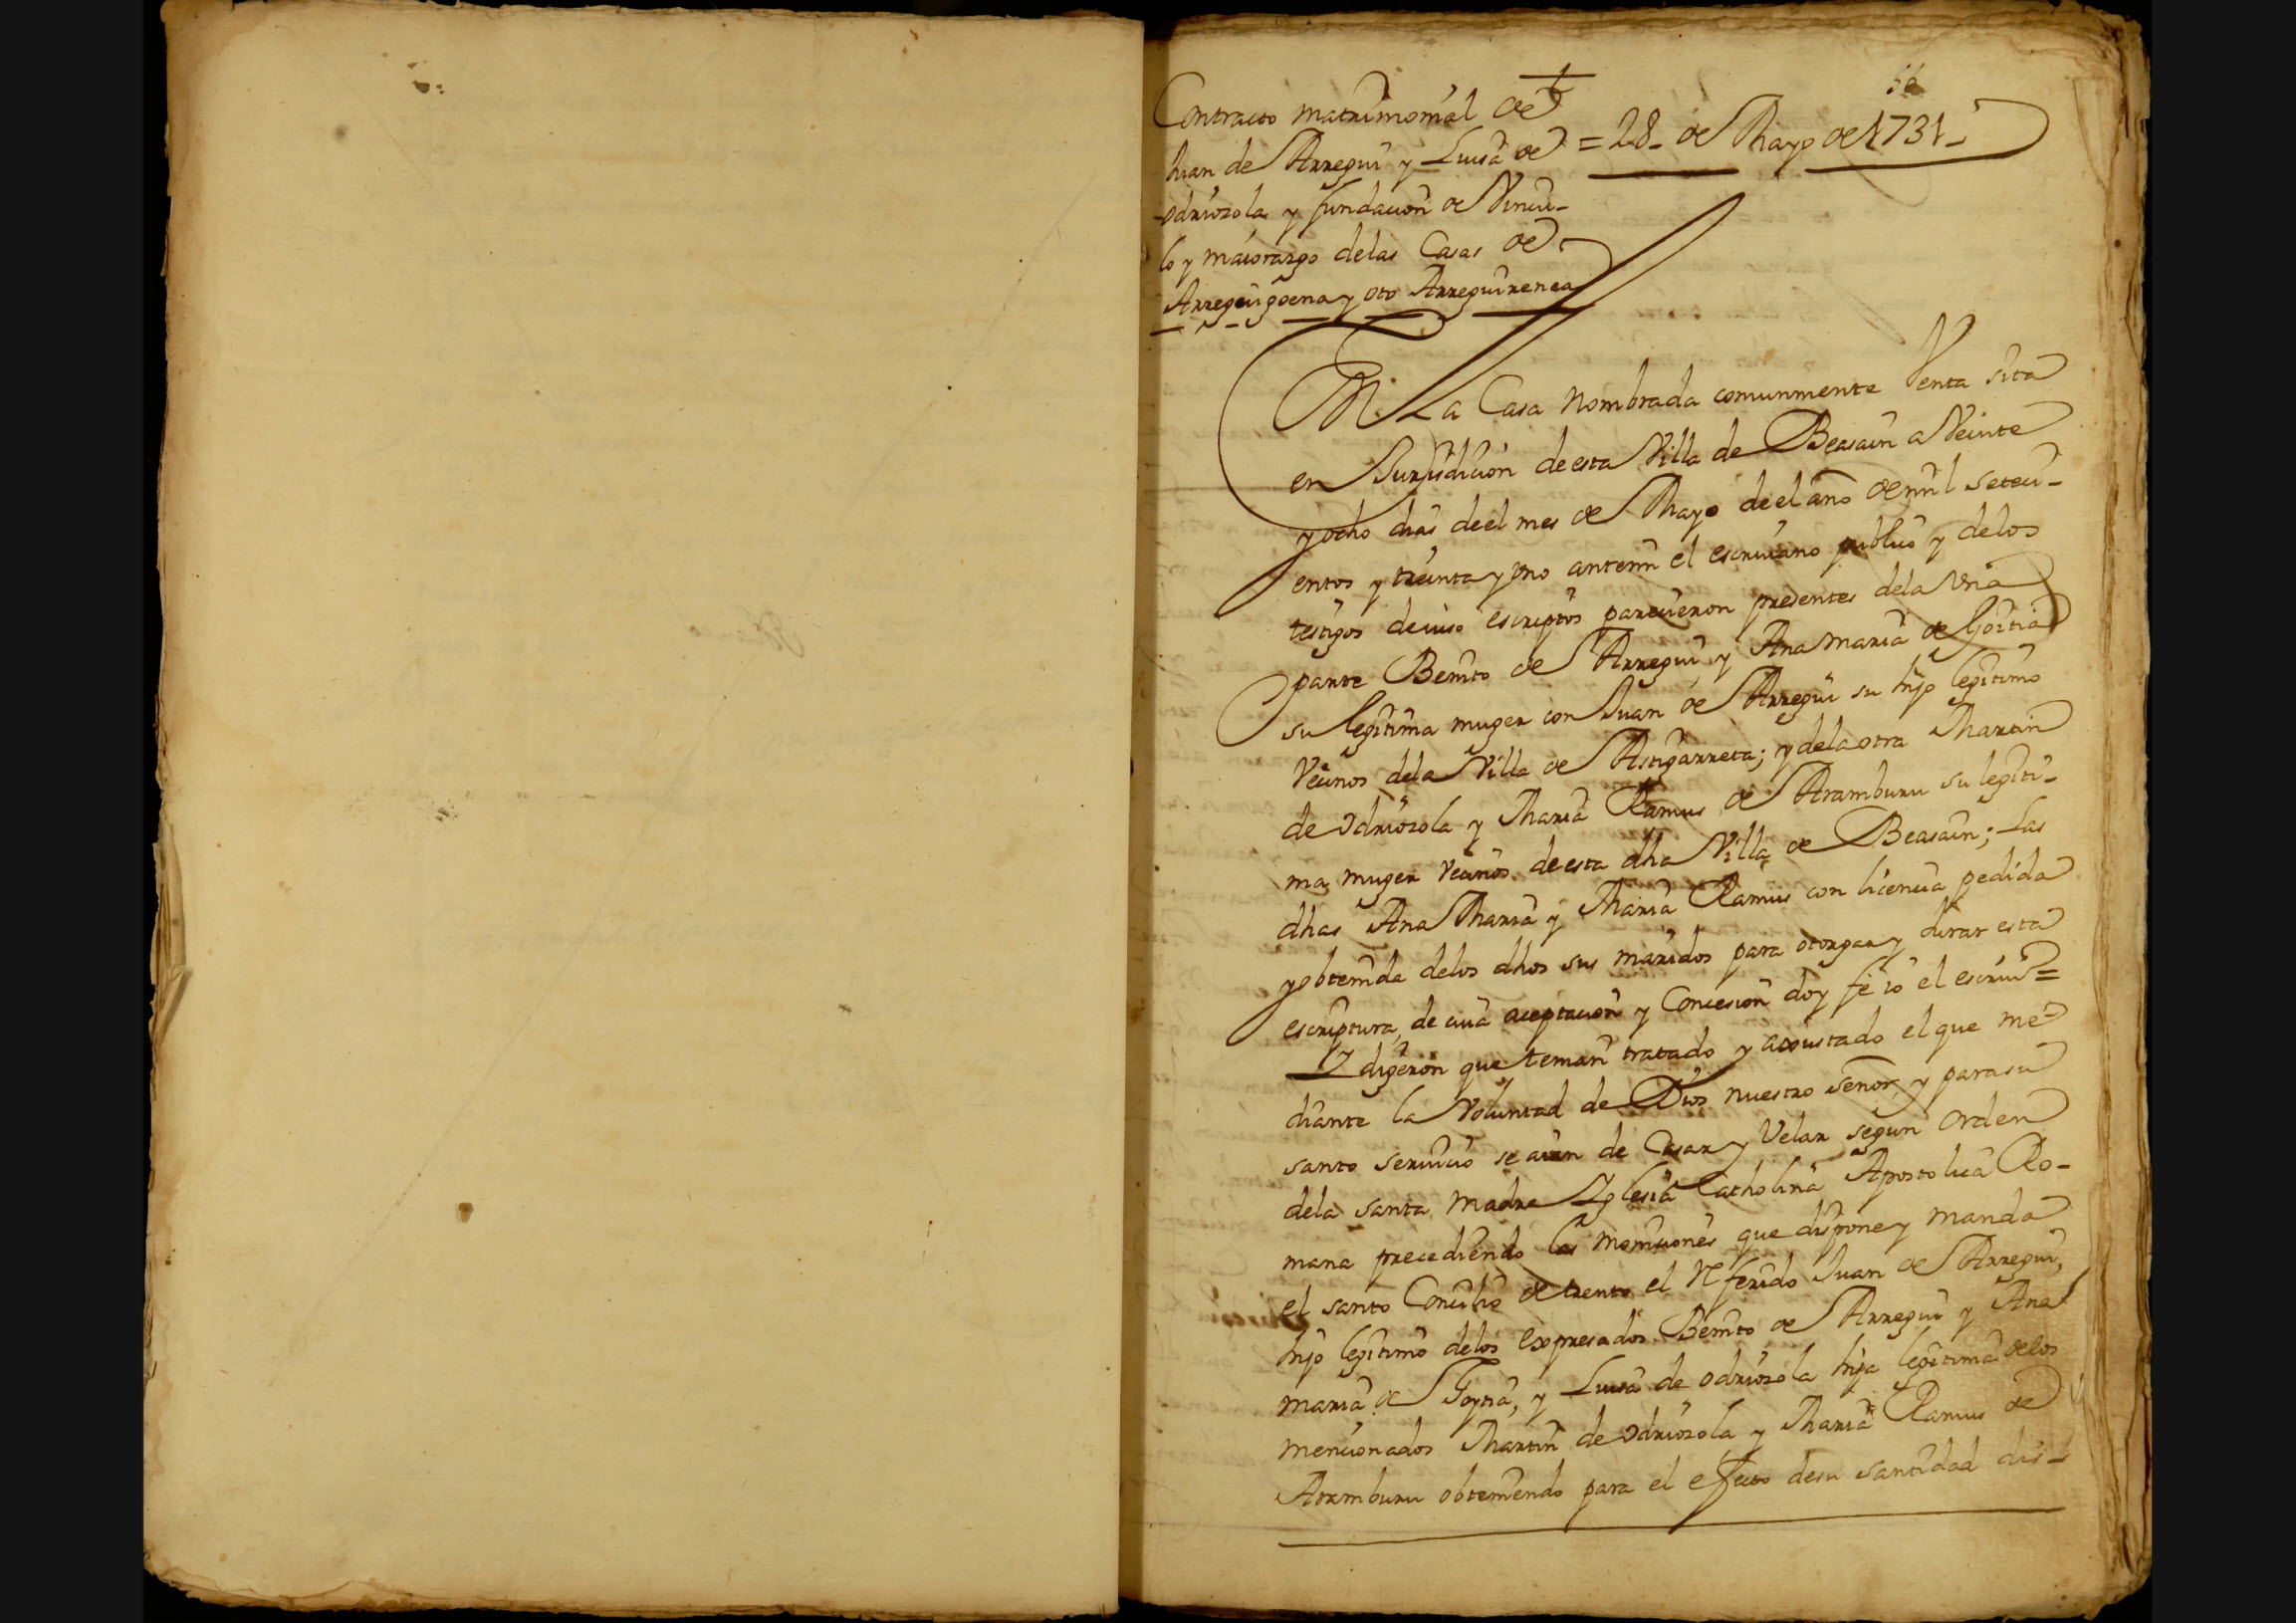 Contracto matrimonial de
Juan de Arregui y Luisa de = 28 - de Mayo de 1731 -
odriozola y fundacion de Vincu-
lo y maiorazgo delas Casas de
Arreguigoena y oto Arreguirenea
En La Casa nombrada comunmente Venta sita
en Jurisdicion de esta Villa de Beasain a Veinte
y ocho dias de el mes de Mayo de el año de mil seteci-
entos y treinta y uno antemi el escriuano publico y delos
testigos deiuso escriptos parecieron presentes dela Una
parte Benito de Arregui y Ana maria de Goitia
su legitima muger con Juan de Arregui su hijo legitimo
Vecinos dela Villa de Astigarreta; y dela otra Martin
de odriozola y Maria Ramus de Aramburu su legiti-
ma muger vecinos de esta dha Villa de Beasain; Las
dhas Ana Maria y Maria Ramus con licencia pedida
y obtenida delos dhos sus maridos para otorgar y Jurar esta
escriptura, de cuia aceptacion y Concesion doy fe io el escriu.º =
Y digeron que tenian tratado y aoiustado el que me-
diante la Voluntad de Dios nuestro señor, y para su
santo seruicio se aian de Casar y Velar segun orden
dela santa Madre Yglesia Catholica Apostolica Ro-
mana precediendo las moniciones que dispone y manda
el santo Concilio de trento el Referido Juan de Arregui,
hijo legitimo delos expresados Benito de Arregui y Ana
maria de Goytia, y Luisa de odriozola hija legitima delos
mencionados Martin de odriozola y Maria Ramus de
Aramburu obteniendo para el efecto desu santidad dis-